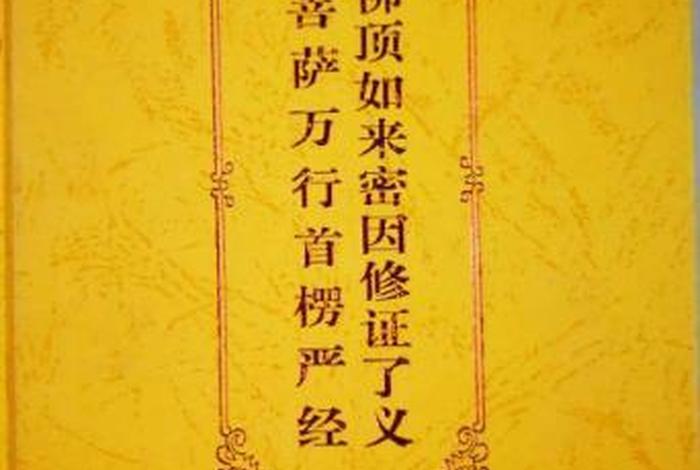 佛顶如来密因修证了义
菩萨万行首楞严经